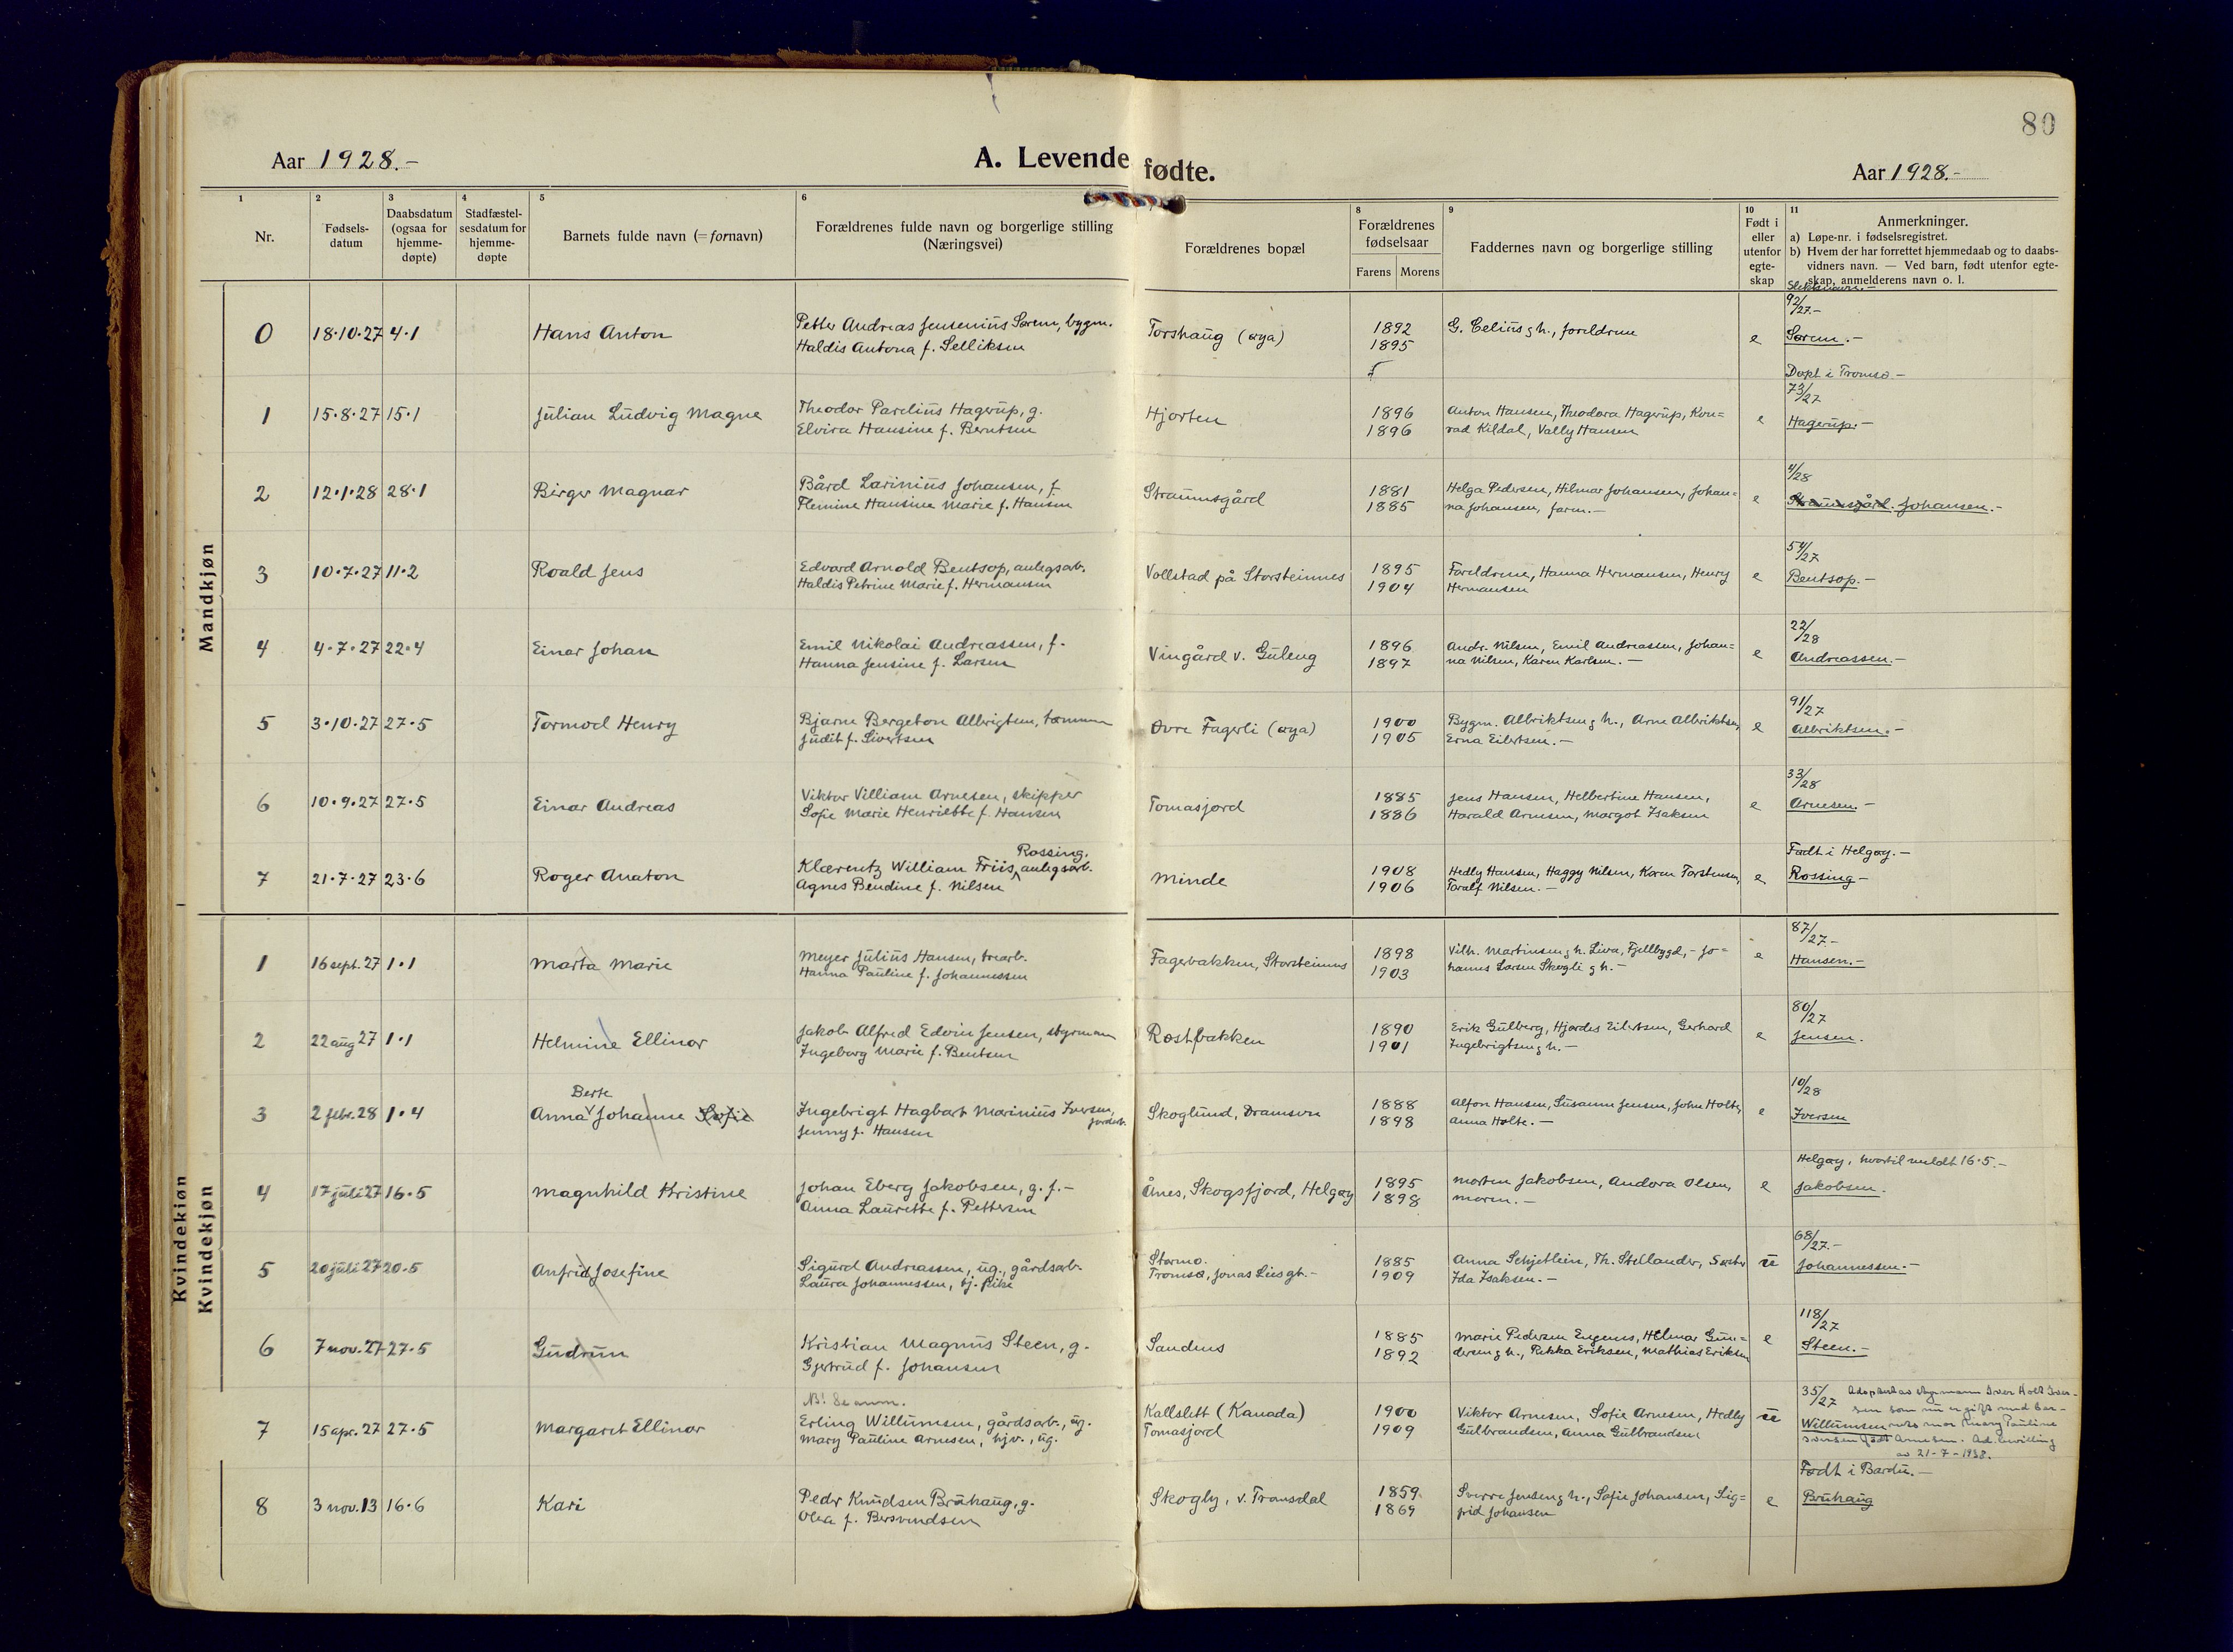 80
Aar 1928.-
A. Levende fødte.
Aar 1928.-
1 Nr.
2 Fødsels-datum
3 Daabsdatum (ogsaa for hjemme-døpte)
4 Stadfæstel-sesdatum for hjemme-døpte
5 Barnets fulde navn (= fornavn)
6 Forældrenes fulde navn og borgerlige stilling (Næringsvei)
7 Forældrenes bopæl
8 Forældrenes fødselsaar Farens Morens
9 Faddernes navn og borgerlige stilling
10 Født i eller utenfor egte-skap
11 Anmerkninger.
a) Løpe-nr. i fødselsregistret.
b) Hvem der har forrettet hjemmedaab og to daabs-
vidners navn. — Ved barn, født utenfor egte-
skap, anmelderens navn o. l.
Slektsnavn.-
Mandkjøn
0 18·10·27 4·1 Hans Anton
Petter Andreas Jensenius Sørem, bygm.
Haldis Antona f. Selliksen
Torshaug (øya)
1892
1895
G. Celius g h., foreldrene
e
92/27.-
Sørem.-
Døpt i Tromsø.-
1 15·8·27 15·1 Julian Ludvig Magne
Theodor Parelius Hagerup, g.
Elvira Hansine f. Berntsen
Hjorten
1896
1896
Anton Hansen, Theodora Hagerup, Kon=
rad Kildal, Vally Hansen
e
73/27
Hagerup.-
2 12·1·28 28·1 Birger Magnar
Bård Larinius Johansen, f
Flemine Hansine Marie f. Hansen
Straumsgård
1881
1885
Helga Pedersen, Hilmar Johansen, Johan=
na Johansen, faren.-
e
4/28
Straumsgård. Johansen.-
3 10·7·27 11·2 Roald Jens
Edvard Arnold Bentsop, anlegsarb.
Haldis Petrine Marie f. Hermansen
Vollstad på Storsteinnes
1895
1904
Foreldrene, Hanna Hermansen, Henry
Hermansen
e
54/27
Bentsop.-
4 4·7·27 22·4 Einar Johan
Emil Nikolai Andreassen, f.
Hanna Jensine f. Larsen
Vingård v. Guleng
1896
1897
Andr. Nilsen, Emil Andreassen, Johan=
na Nilsen, Karen Karlsen.-
e
22/28
Andreassen.-
5 3·10·27 27·5 Tormod Henry
Bjarne Bergeton Albrigtsen, tømmerm
Judit f. Sivertsen
Øvre Fagerli (øya)
1900
1905
Bygm. Albriktsen g h., Arne Albriktsen,
Erna Eilertsen.-
e
91/27
Albriktsen.-
6 10·9·27 27·5 Einar Andreas
Viktor Villiam Arnesen, skipper
Sofie Marie Henriette f. Hansen
Tomasjord
1885
1886
Jens Hansen, Helbertine Hansen,
Harald Arnesen, Margot Isaksen
e
33/28
Arnesen.-
7 21·7·27 23·6 Roger Anaton
Røssing.
Klærentz William Friis, anlegsarb.
Agnes Bendine f. Nilsen
Minde
1908
1906
Hedly Hansen, Haggy Nilsen, Karen Torstensen,
Toralf Nilsen.-
e
Født i Helgøy.-
Røssing-
Kvindekjøn
Kvindekjøn
1 16 sept. 27 1·1 Marta Marie
Meyer Julius Hansen, trearb.
Hanna Pauline f. Johannessen
Fagerbakken, Storsteinnes
1898
1903
Vilh. Martinsen g h. Liva, Fjellbygd,- Jo=
hannes Larsen Skogli g h.-
e
87/27-
Hansen.-
2 22 aug 27 1·1 Helmine Ellinor
Jakob Alfred Edvin Jensen, styrmann
Ingeborg Marie f. Bentsen
Rostbakken
1890
1901
Erik Gulberg, Hjørdis Eilertsen, Gerhard
Ingebrigtsen g h.-
e
80/27
Jensen.
3 2 febr. 28 1·4 Berte
Anna Johanne Sofie
Ingebrigt Hagbart Marinius Iversen,
Jenny f. Hansen
Skoglund, Dramsvn
1888
1898
Alfon Hansen, Susanne Jensen, John Holte,
Anna Holte.-
e
10/28
Iversen
4 17 juli 27 16·5 Magnhild Kristine
Johan Eberg Jakobsen, g. f.-
Anna Laurette f. Pettersen
Ånes, Skogsfjord, Helgøy
1895
1898
Morten Jakobsen, Andora Olsen,
moren.-
e
Helgøy, hvortil meldt 16·5.-
Jakobsen.
5 20 juli 27 20·5 Anfrid Josefine
Sigurd Andreassen, ug., gårdsarb.
Laura Johannessen, tj. pike
Stormo.
Tromsø, Jonas Lies gt.-
1885
1909
Anna Schjetlein, Th. Stellander, Søster
Ida Isaksen.-
u
68/27.-
Johannessen.-
6 7 nov. 27 27·5 Gudrun
Kristian Magnus Steen, g.
Gjertrud f. Johansen
Sandnes
1885
1892
Marie Pedersen Engenes, Helmar Gun=
dersen g h., Rikka Eriksen, Mathias Eriksen
e
118/27
Steen.-
7 15 apr. 27 27·5 Margaret Ellinor
NB! Se anm.
Erling Willumsen, gårdsarb., ug.
Mary Pauline Arnesen, hjv., ug.
Kallslett (Kanada)
Tomasjord
1900
1909
Viktor Arnesen, Sofie Arnesen, Hedly
Gulbrandsen, Anna Gulbrandsen
u
35/27 Adoptert av styrmann Iver Holt Iver-
sen som nu er gift med bar-
Willumsen nets mor Mary Pauline
Iversen født Arnesen. Ad. bevilling
av 21-7-1938.
8 3 nov. 13 16·6 Kari
Peder Knudsen Bruhaug, g.
Olea f. Bersvendsen
Skogly, v. Tromsdal
1859
1869
Sverre Jensen g h., Sofie Johansen, Sig=
frid Johansen
e
Født i Bardu.-
Bruhaug